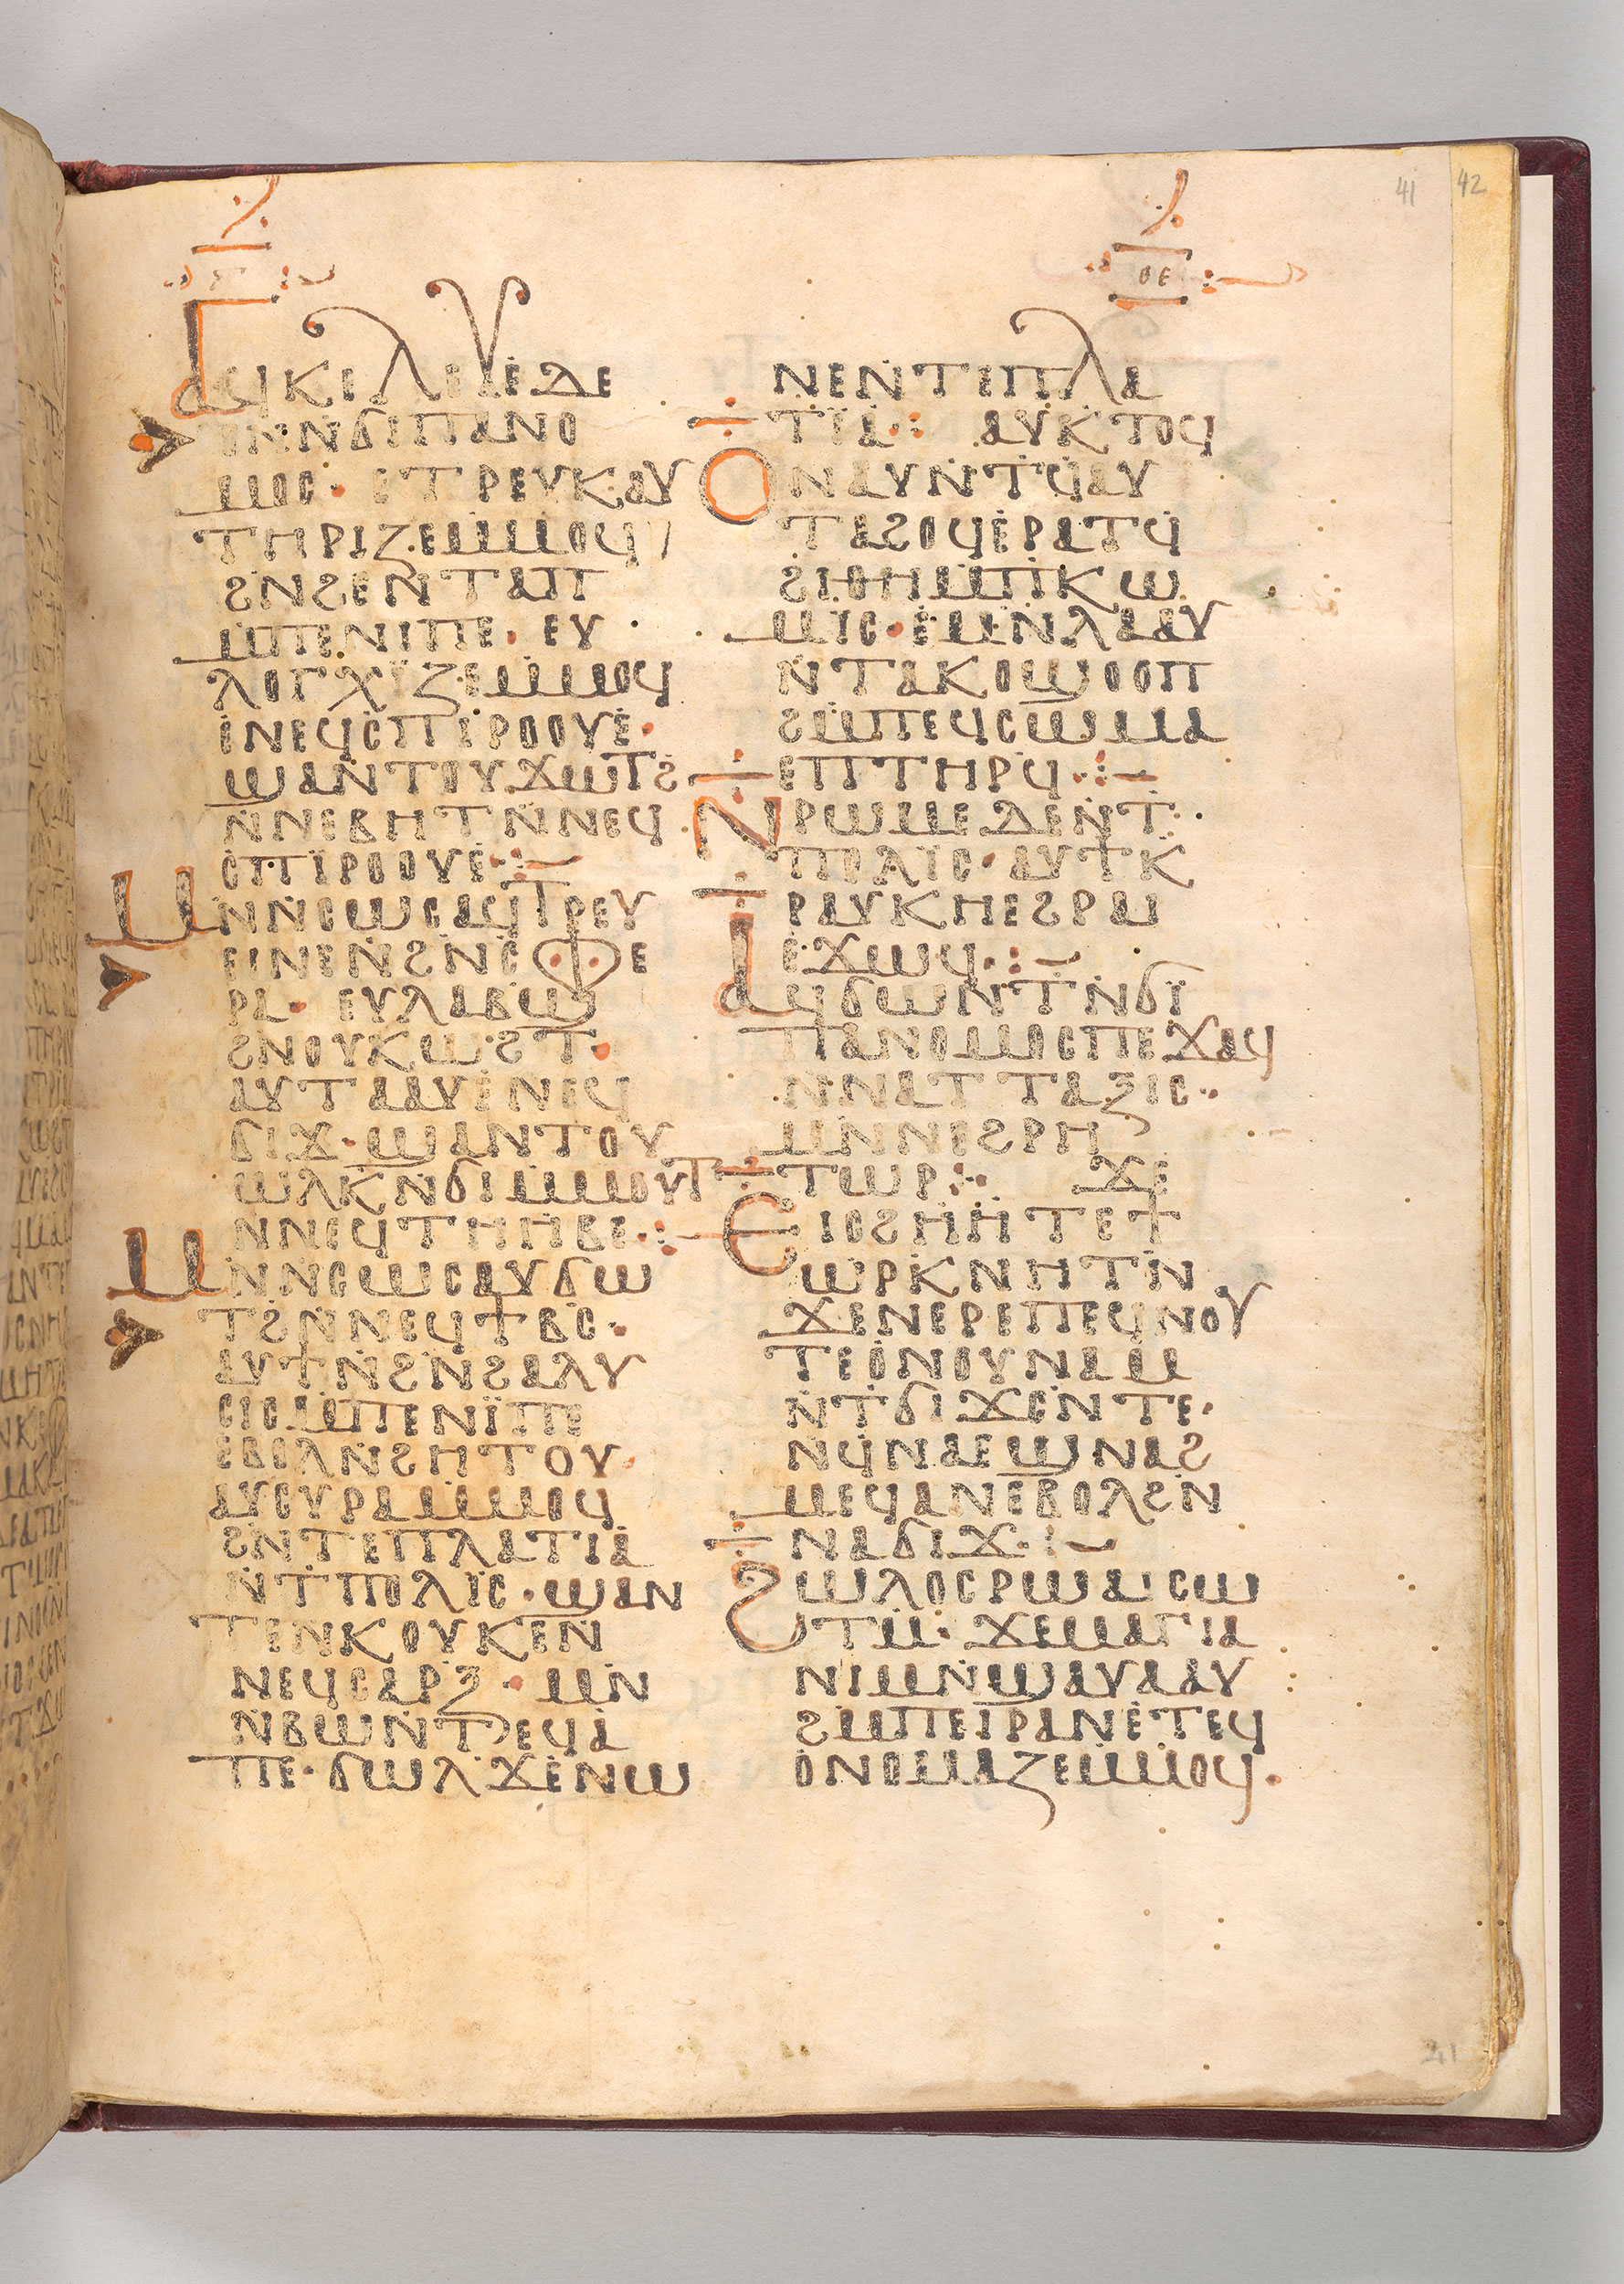 41 42
ⲑⲉ
ⲁϥⲕⲉⲗⲉⲩⲉⲇⲉ
ⲟⲛⲛϭⲓⲡⲁⲛⲟ
ⲙⲟⲥ· ⲉⲧⲣⲉⲩⲕⲁⲩ
ⲧⲏⲣⲓⲍⲉⲙⲙⲟϥ
ϩⲛϩⲉⲛⲧⲁⲡ
ⲙⲡⲉⲛⲓⲡⲉ· ⲉⲩ
ⲗⲟⲅⲭⲓⲍⲉⲙⲙⲟϥ
ⲉⲛⲉϥⲥⲡⲓⲣⲟⲟⲩⲉ·
ϣⲁⲛⲧⲟⲩϫⲱⲧϩ
ⲛⲛⲉⲃⲏⲧⲛⲛⲉϥ
ⲥⲡⲓⲣⲟⲟⲩⲉ·:—
ⲙⲛⲛⲥⲱⲥⲁϥⲧⲣⲉⲩ
ⲉⲓⲛⲉⲛϩⲛⲥⲫⲉ
ⲣⲁ· ⲉⲩⲗⲁⲃϣ
ϩⲛⲟⲩⲕⲱϩⲧ·
ⲁⲩⲧⲁⲁⲩⲉⲛⲉϥ
ϭⲓϫ·ϣⲁⲛⲧⲟⲩ
ⲱⲗⲕⲛϭⲓⲙⲙⲟⲩⲧ
ⲛⲛⲉϥⲧⲏⲏⲃⲉ·:—
ⲙⲛⲛⲥⲱⲥⲁⲩϭⲱ
ⲧϩⲛⲛⲉϥϯⲃⲥ·
ⲁⲩϯⲛϩⲛϩⲁⲗⲩ
ⲥⲓⲥⲙⲡⲉⲛⲓⲡⲉ
ⲉⲃⲟⲗⲛϩⲏⲧⲟⲩ·
ⲁⲩⲥⲩⲣⲁⲙⲙⲟϥ
ϩⲛⲧⲉⲡⲗⲁⲧⲓⲁ
ⲛⲧⲡⲟⲗⲓⲥ·ϣⲁⲛ
ⲧⲉⲛⲕⲟⲩⲕⲉⲛ
ⲛⲉϥⲥⲁⲣⲝ·ⲙⲛ
ⲛⲃⲱⲛⲧⲉϥⲁ
ⲡⲉ·ϭⲱⲗϫⲉⲛⲱ
ⲛⲉⲛⲧⲉⲡⲗⲁ
ⲧⲓⲁ: ⲁⲩⲕⲧⲟϥ
ⲟⲛⲁⲩⲛⲧϥⲁⲩ
ⲧⲁϩⲟϥⲉⲣⲁⲧϥ
ϩⲓⲑⲏⲙⲡⲕⲱ
ⲙⲓⲥ·ⲉⲙⲛⲗⲁⲁⲩ
ⲛⲧⲁⲕⲟϣⲟⲟⲡ
ϩⲙⲡⲉϥⲥⲱⲙⲁ
ⲉⲡⲧⲏⲣϥ·:—
ⲛⲣⲱⲙⲉⲇⲉⲛⲧ·
ⲡⲟⲗⲓⲥ·ⲁⲩϯⲕ
ⲣⲁⲩⲕⲏⲉϩⲣⲁⲓ
ⲉϫⲱϥ·:—
ⲁϥϭⲱⲛⲧⲛϭⲓ
ⲡⲁⲛⲟⲙⲟⲥⲡⲉϫⲁϥ
ⲛⲛⲁⲧⲧⲁⲝⲓⲥ·
ⲙⲛⲛⲉϩⲣⲏ
ⲧⲱⲣ: ϫⲉ
ⲉⲓⲥϩⲏⲏⲧⲉϯ
ⲱⲣⲕⲛⲏⲧⲛ
ϫⲉⲛⲉⲣⲉⲡⲉϥⲛⲟⲩ
ⲧⲉⲟⲛⲟⲩⲛⲁⲙ
ⲛⲧϭⲓϫⲉⲛⲧⲉ·
ⲛϥⲛⲁⲉϣⲛⲁϩ
ⲙⲉϥⲁⲛⲉⲃⲟⲗϩⲛ
ⲛⲁϭⲓϫ·:—
ϩⲱⲗⲟⲥⲣⲱⲁⲓⲥⲱ
ⲧⲙ· ϫⲉⲙⲁⲅⲓⲁ
ⲛⲓⲙⲛϣⲁⲩⲁⲁⲩ
ϩⲙⲡⲉⲓⲣⲁⲛⲉⲧⲉϥ
ⲟⲛⲟⲙⲁⲍⲉⲙⲙⲟϥ·
41